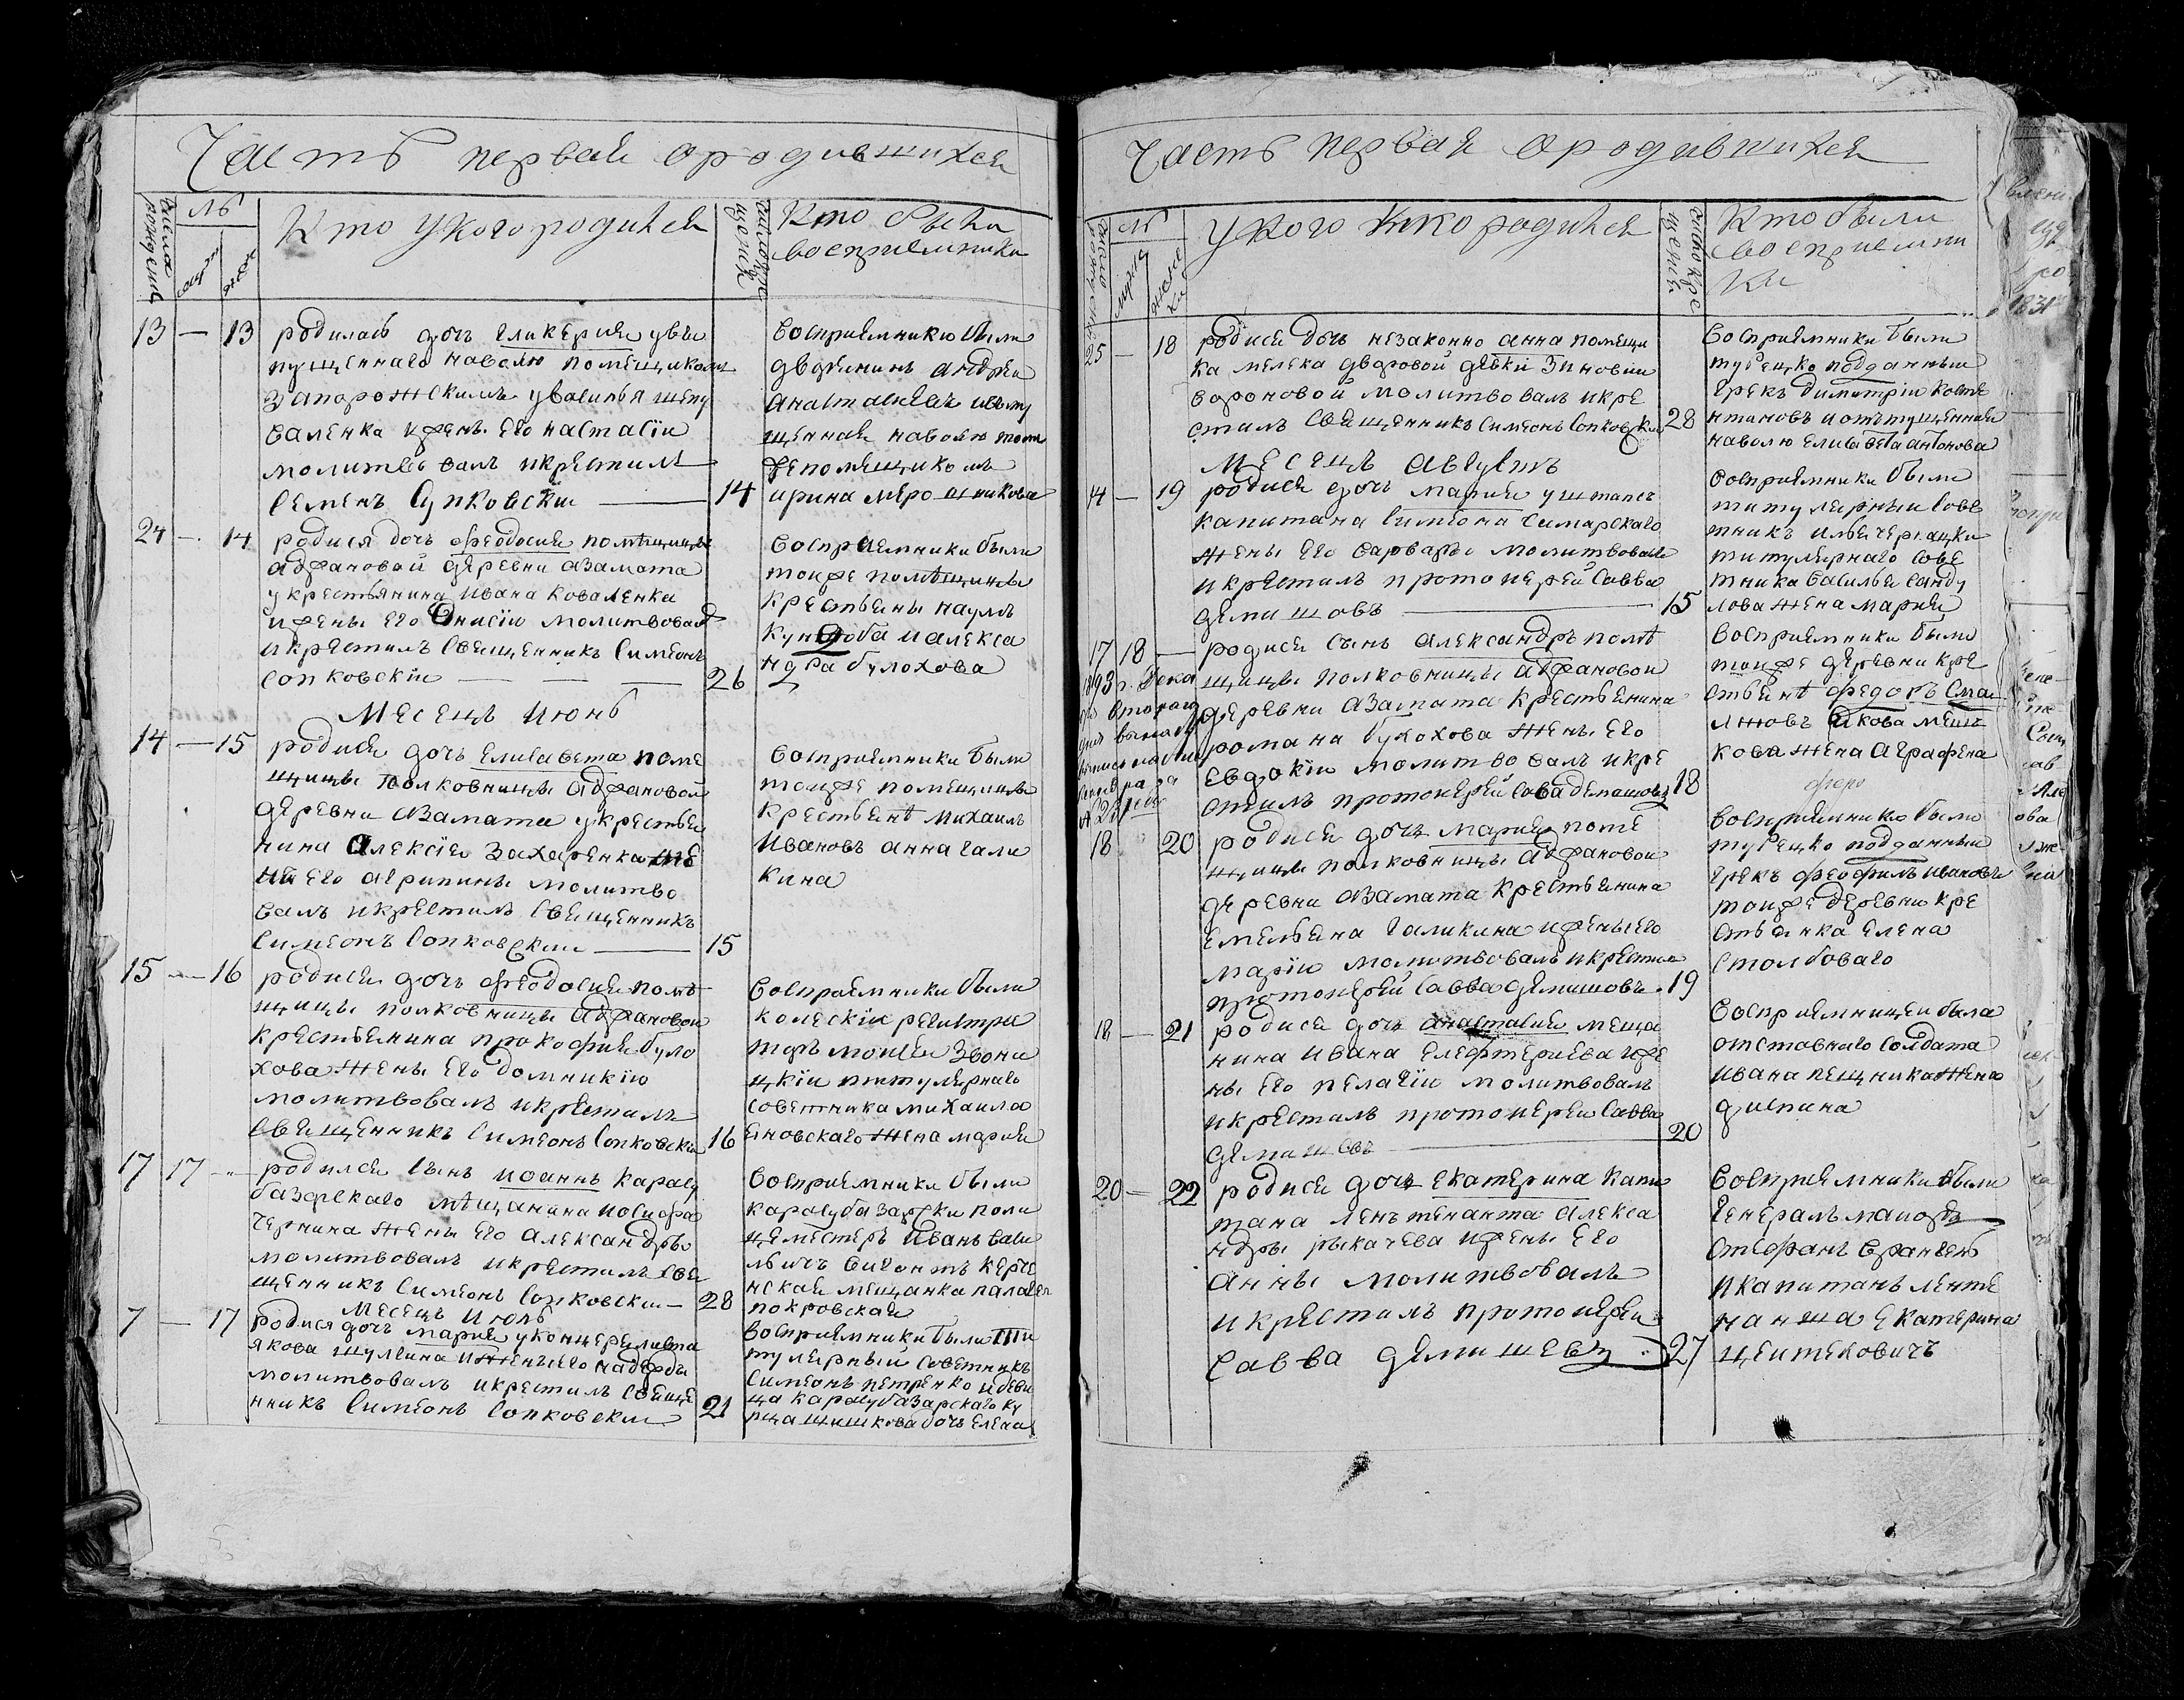 Часть первая ородившихся
№
Кто Укого родился
Кто были
восприемники
13 — 13 родилась дочь Гликерия увы
пущеннаго наволю помещикомъ
Запорожскимъ увасилья шепу
валенка ижены его настасіи
молитвовалъ икрестилъ
Семенъ Супковский — 14
Восприемники были
дворенинъ андреи
анастасиевъ ивыпу
щенная наволю томъ
же помещикомъ
ирина мирошникова
24 — 14 родися дочь феодосия помѣщицы
адфановой деревни азамата
укрестьянина ивана коваленка
ижены его Онисіи молитвовалъ
икрестилъ священникъ Симеонъ
сопковскій — 26
Восприемники были
тоиже помѣщицы
крестьяны наумъ
алекса
ндра булохова
Месецъ июнь
14 — 15 родися дочь елисавета поме
щицы полковницы адфановой
деревни азамата укрестья
нина алексіея захаренка же
ни его агрипины молитво
валъ икрестилъ священникъ
Симеонъ Сопковский — 15
Восприемники были
тоиже помещицы
крестьянѣ михаилъ
ивановъ анна гали
кина
15 — 16 родися дочь феодосия помѣ
щицы полковницы адфановои
крестьянина прокофия було
хова жены его домникіи
молитвовалъ икрестилъ
священникъ Симеонъ Сопковскій 16
Восприемники были
колескіи регистра
торъ моисеи звони
цкіи титулярнаго
советника михаила
яновскаго жена мария
17 17 — родился сынъ иоаннъ карасу
базарскаго мѣщанина иосифа
чернина жены его александры
молитвовалъ икрестилъ свя
щенникъ Симеонъ Сопковский — 28
Восприемники были
карасубазарски поли
цеместеръ иванъ васи
льичъ керче
нская мещанка палагея
покровская
Месецъ Июль
7 — 17 родися дочь мария уконцеремиста
якова шулгина иженыего надежды
молитвовалъ икрестилъ свяще
нникъ Симеонъ Сопковский 21
Восприемники были ти
тулярный советникъ
Симеонъ петренко идеви
ца карасубазарскаго ку
пца шишкова дочь елена
Часть первая ородившихся
№
Укого кто родился
Кто были
восприемни
ки
25 — 18 родися дочь незаконно анна помещи
ка мелека дворовой девки Зиновии
вороновой молитвовалъ икре
стилъ священникъ Симеонъ Сопковски 28
Восприемники были
турецко подданныи
грекъ димитрии конста
нтиновъ иотъпущенная
наволю елисавета антонова
Месецъ августъ
14 — 19 родися дочь мария уштапсъ
капитана Симеона Симарскаго
жены его варвары молитвовалъ
икрестилъ протоиерей Савва
демишовъ — 15
Восприемники были
титулярныи сове
тникъ
титулярнаго сове
тника василья санду
лова жена мария
17 18 — родися сынъ александръ помѣ
щицы полковницы адфановои
деревни азамата крестьянина
романа булохова жены его
евдокіи молитвовалъ икре
стилъ протоиерей савадемишовъ 18
1893 г. Дека
Восприемники были
тоиже деревни кре
стьянѣ федоръ
якова меш
кова жена аграфена
18 20 родися дочь мария поме
щицы полковницы адфановои
деревни азамата крестьянина
емельяна галикина иженыего
маріи молитвовалъ икрестил
протоиерей савва демишовъ 19
Восприемники были
турецко подданныи
грекъ феофилъ ивановъ
тоиже деревни кре
стьянка елена
столбоваго
18 — 21 родися дочь анастасия меща
нина ивана елефтериева иже
ны его пелагіи молитвовалъ
икрестилъ протоиереи савва
демишевъ 20
Восприемницеи была
отставнаго солдата
ивана пещника жена
диспина
20 — 22 родися дочь екатерина капи
тана лентенанта алекса
ндры рыкачева ижены его
анны молитвовалъ
икрестилъ протоиереи
савва демишевъ 27
Восприемники были
генералъ маиоръ
стефанъ врангель
икапитанъ ленте
нанша екатерина
цеитековичъ